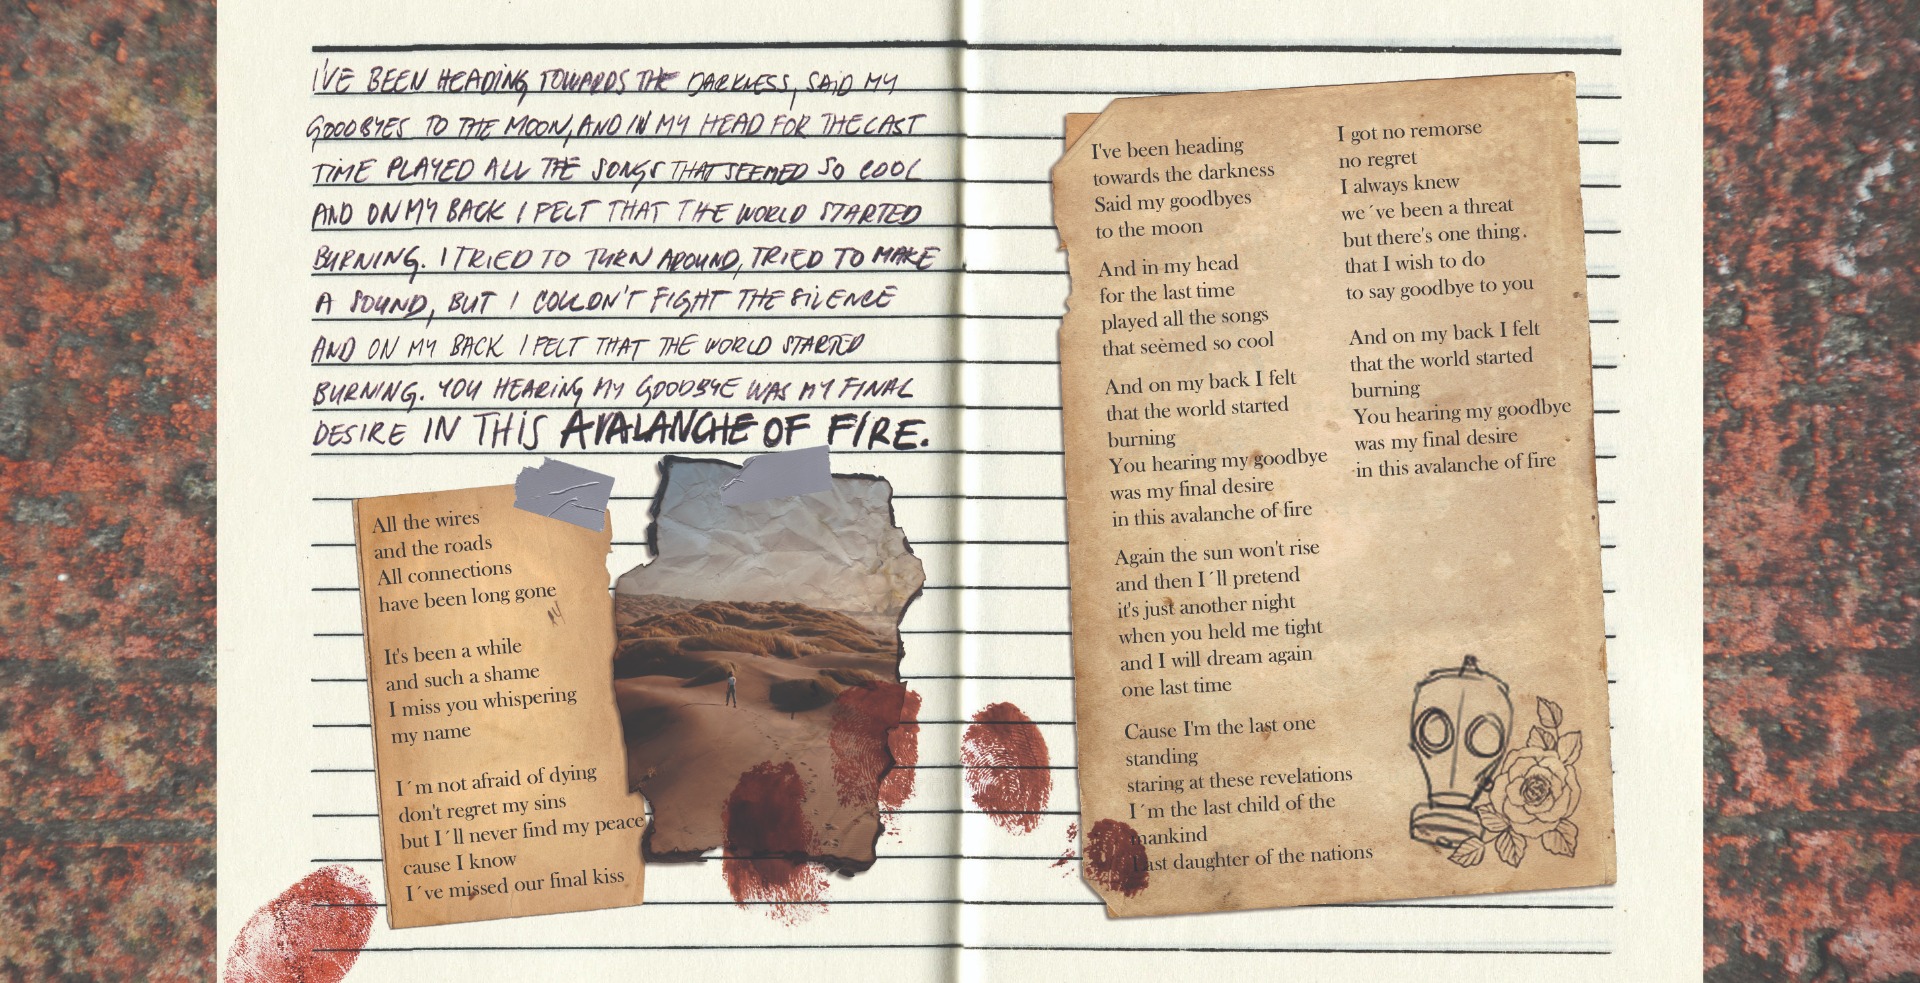 I'VE BEEN HEADING TOWARDS THE DARKNESS, SAID MY
GOODBYES TO THE MOON, AND IN MY HEAD FOR THE LAST
TIME PLAYED ALL THE SONGS THAT SEEMED SO COOL
AND ON MY BACK I FELT THAT THE WORLD STARTED
BURNING. I TRIED TO TURN AROUND, TRIED TO MAKE
A SOUND, BUT I COULDN'T FIGHT THE SILENCE
AND ON MY BACK I FELT THAT THE WORLD STARTED
BURNING. YOU HEARING MY GOODBYE WAS MY FINAL
DESIRE IN THIS AVALANCHE OF FIRE.
All the wires
and the roads
All connections
have been long gone
It's been a while
and such a shame
I miss you whispering
my name
I´m not afraid of dying
don't regret my sins
but I´ll never find my peace
cause I know
I´ve missed our final kiss
I've been heading
towards the darkness
Said my goodbyes
to the moon
And in my head
for the last time
played all the songs
that seemed so cool
And on my back I felt
that the world started
burning
You hearing my goodbye
was my final desire
in this avalanche of fire
Again the sun won't rise
and then I´ll pretend
it's just another night
when you held me tight
and I will dream again
one last time
Cause I'm the last one
standing
staring at these revelations
I´m the last child of the
mankind
Last daughter of the nations
I got no remorse
no regret
I always knew
we´ve been a threat
but there's one thing.
that I wish to do
to say goodbye to you
And on my back I felt
that the world started
burning
You hearing my goodbye
was my final desire
in this avalanche of fire